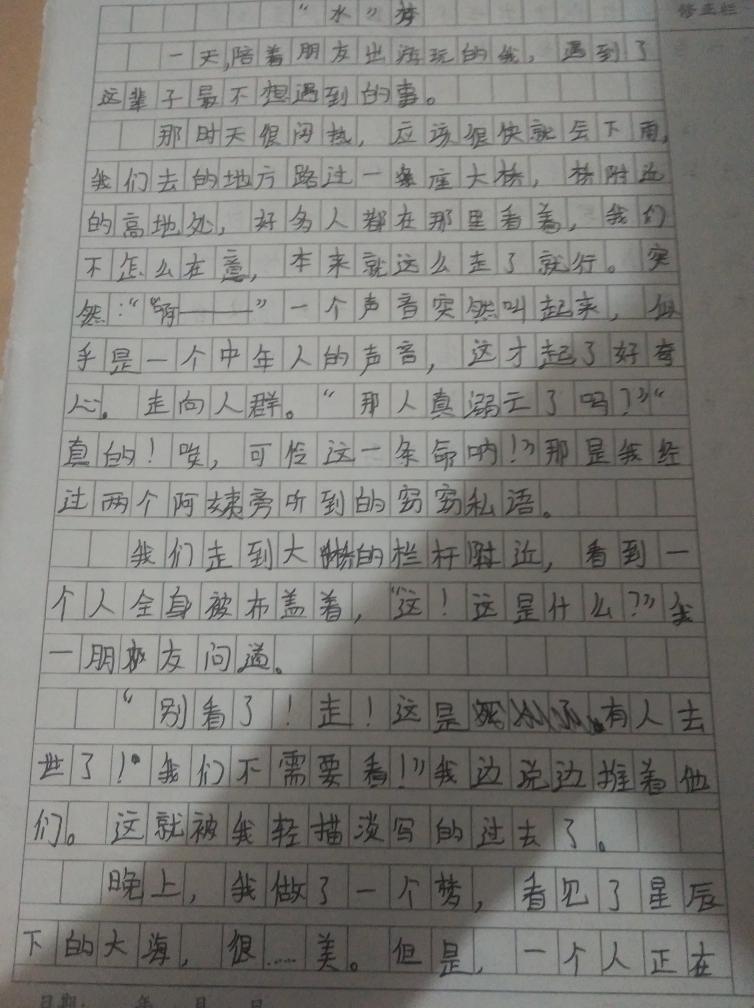 修正栏
“水”梦
一天,陪着朋友出游玩的我，遇到了
这辈子最不想遇到的事。
那时天很闷热，应该很快就会下雨,
我们去的地方路过一座大桥，桥附近
的高地处，好多人都在那里看着，我们
不怎么在意，本来就这么走了就行。突
然：“啊——”一个声音突然叫起来，似
乎是一个中年人的声音，这才起了好奇
心。走向人群。“那人真溺亡了吗？”“
真的！唉，可怜这一条命呐！”那是我经
过两个阿姨旁听到的窃窃私语。
我们走到大桥的栏杆附近，看到一
个人全身被布盖着，“这！这是什么？”我
一朋友问道。
“别看了！走！这是有人去
世了！我们不需要看！”我边说边推着他
们。这就被我轻描淡写的过去了。
晚上，我做了一个梦，看见了星辰
下的大海，很……美。但是，一个人正在
日期： 年 月 日